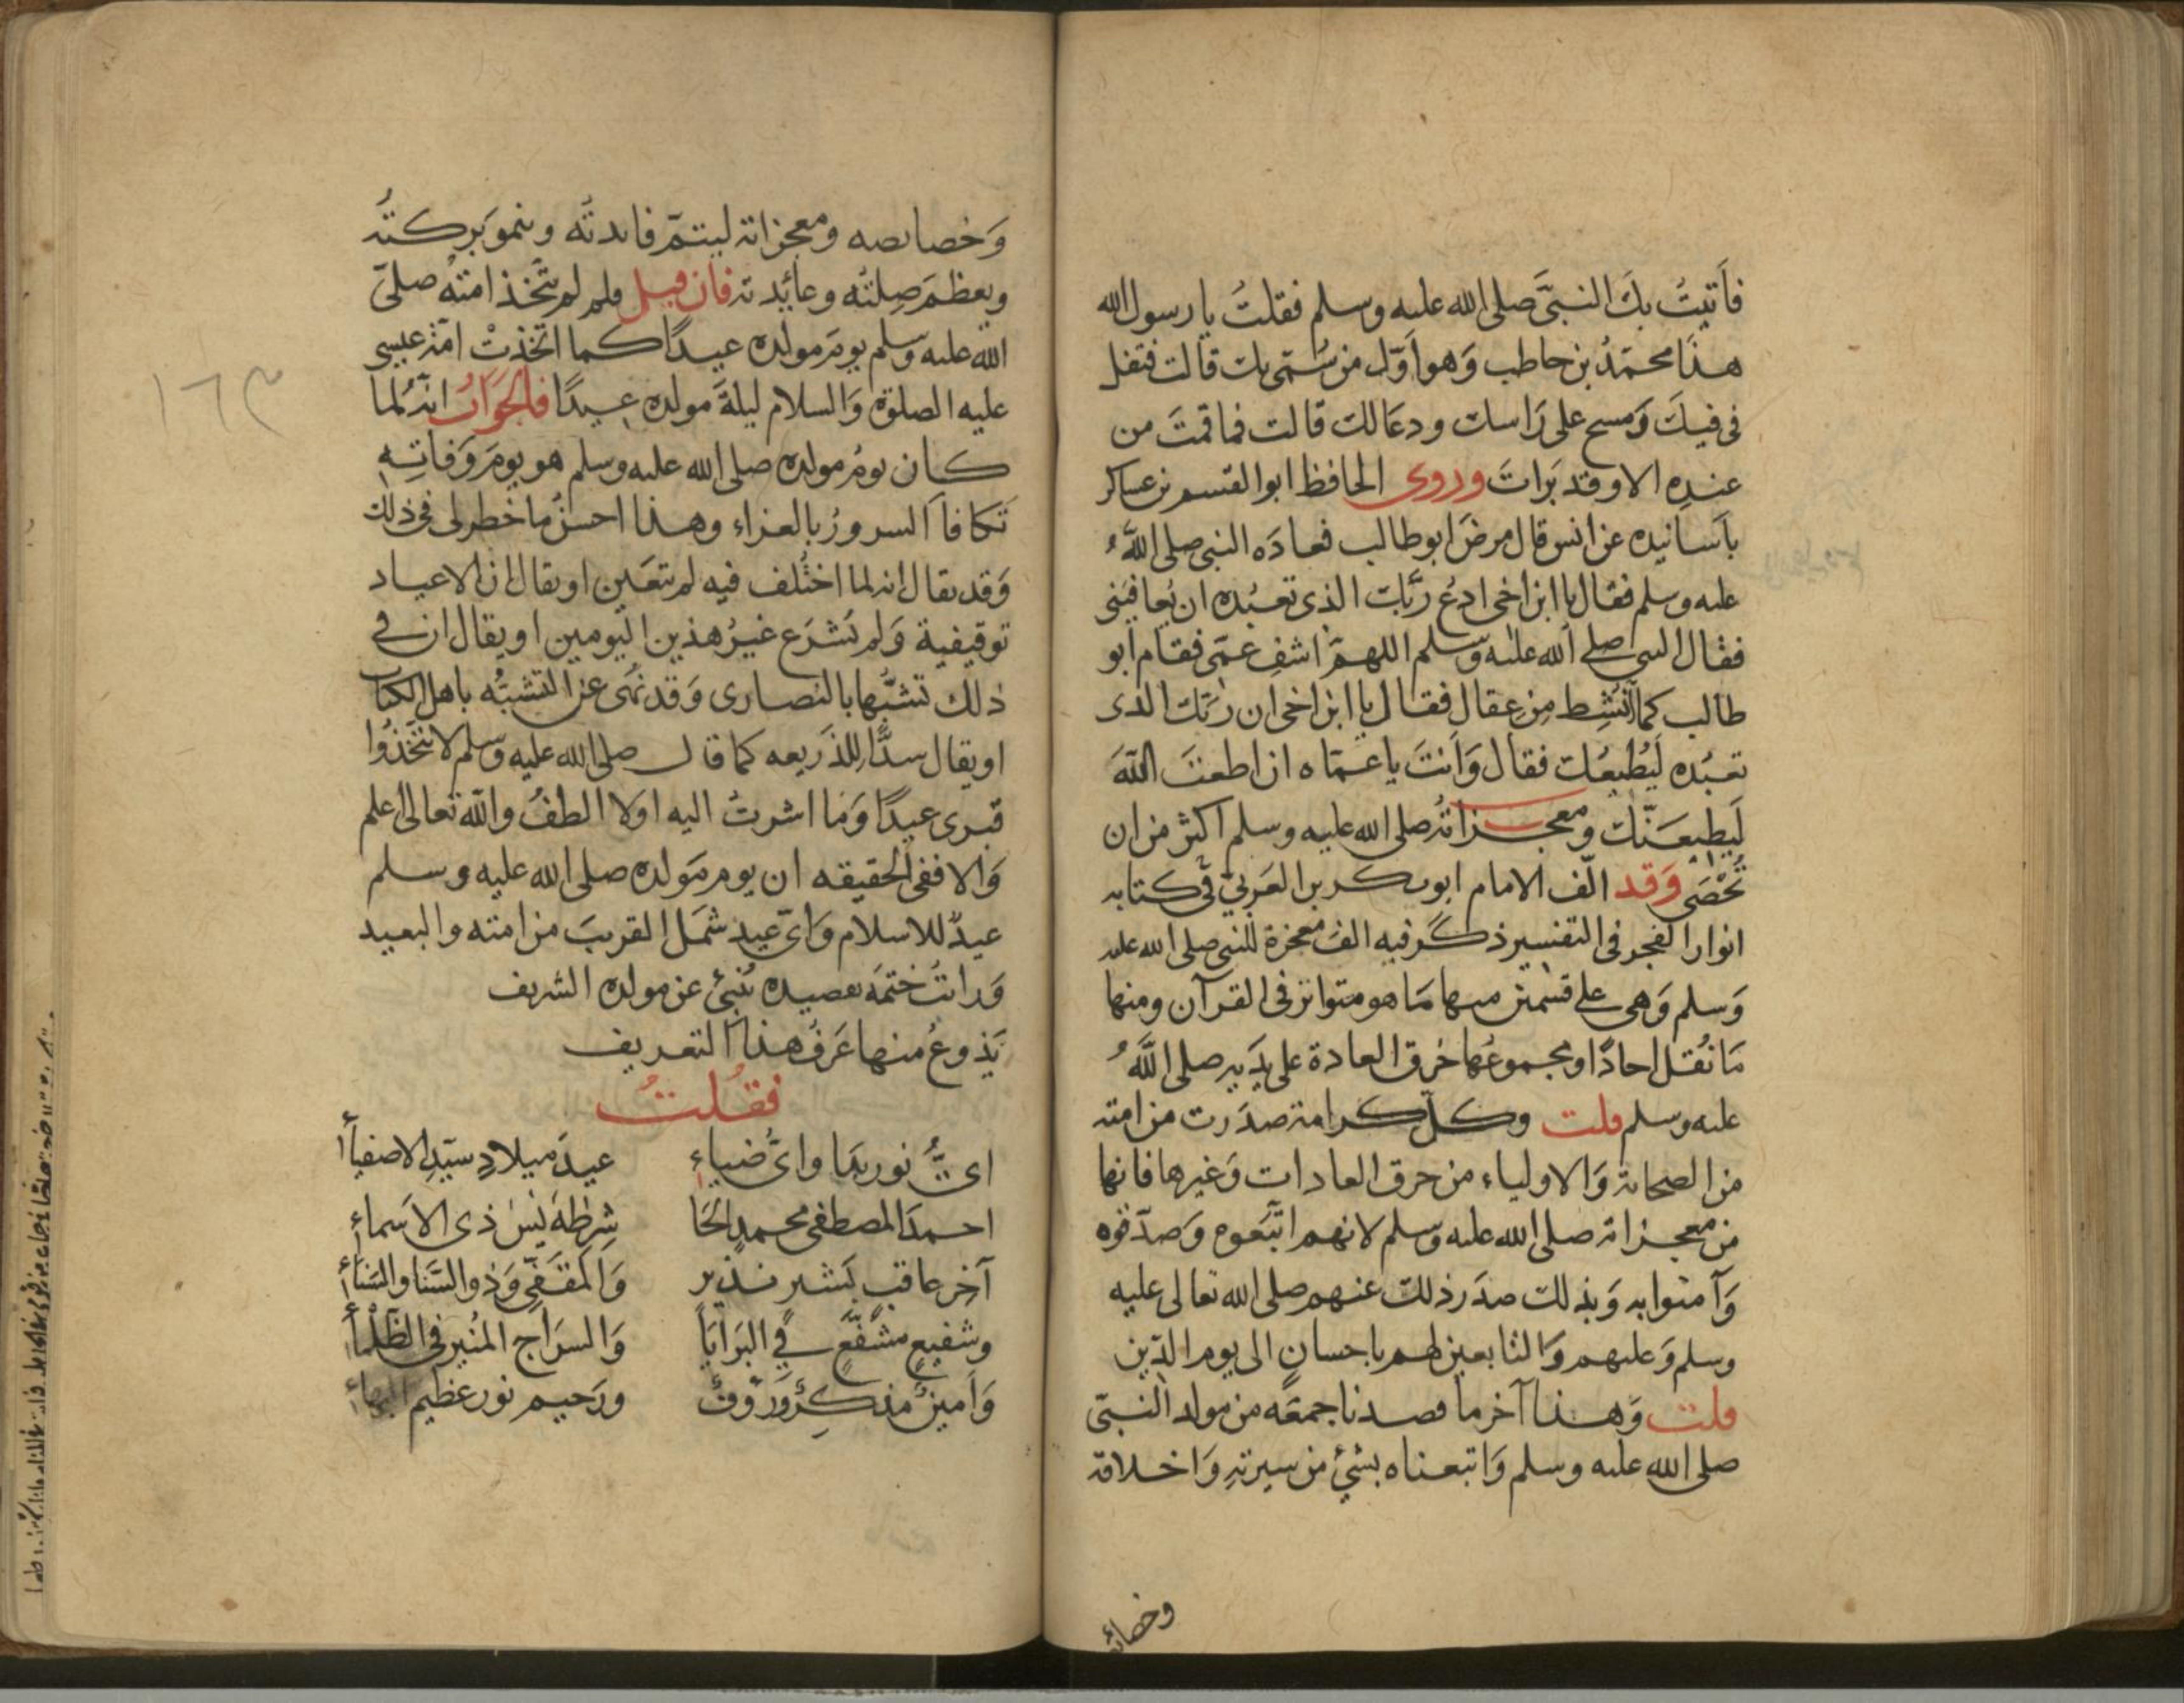 فأتيتُ بك النبيَّ صلى الله عليه وسلم فقلتُ يا رسول الله
هذا محمدُ بن حاطب وَهو أوّل من سُمّى بك قالت فتفل
فى فيكَ وَمسح على رَاسك ودعَا لك قالت فما قمتَ من
عنده الا وقد بَراتَ وروى الحافظ ابو القسم بن عساكر
بأسانيده عن انس قال مرضَ ابو طالب فعادَه النبى صلى اللهُ
عليه وسلم فقال يا ابن اخى ادعُ ربَّك الذى تعبُده ان يُعافينى
فقال النبى صلى الله عليه وسلم اللهمَّ اشفِ عمّى فقام ابو
طالب كما نُشِط من عِقال فقال يا ابن اخى ان ربَّك الذى
تعبُده لَيُطيعُك فقال وَانتَ يا عمّاه ان اطعتَ اللهَ
لَيطيعَنّك ومعجزاتُه صلى الله عليه وسلم اكثر من ان
تُحْصَى وَقد الّف الامام ابو بكر بن العَربىّ فى كتابه
انوار الفجر فى التفسير ذكر فيه الف معجزة للنبى صلى الله عليه
وَسلم وَهى على قسمين منها مَا هو متواتر فى القرآن ومنها
مَا نُقل احادًا ومجموعُها خرق العادة على يدَيه صلى اللَّهُ
عليه وسلم قلت وكلّ كرامة صدَرت من امته
من الصحابة وَالاولياء من خرق العادات وَغيرها فانها
من معجزاته صلى الله عليه وسلم لانهم اتّبَعوه وَصدّقوه
وَآمنوا به وَبذلك صدَر ذلك عنهم صلى الله تعالى عليه
وسلم وَعليهم وَالتابعين لهم باحسانٍ الى يوم الدّين
قلت وَهذا آخر ما قصدنا جمعَه من مولد النبىّ
صلى الله عليه وسلم وَاتبعناه بشئ من سيرتهِ وَاخلاقه
وخصائصه
وَخصائصه ومعجزاته ليتمّ فائدتُه وينمو بَركتُه
ويعظمَ صِلتُه وعائدته فان قيل فلم لم يتّخذ امتُه صلى
الله عليه وسلم يومَ مولده عيدًا كما اتّخذتْ امّة عيسى
عليه الصلوة وَالسلام ليلةَ مولده عيدًا فالجوَابُ انّه لما
كان يومُ مولده صلى الله عليه وسلم هو يومَ وَفاتِه
تَكافأ السرورُ بالعزاء وهذا احسنُ ما خطر لى فى ذلك
وَقد يقال انه لما اختُلف فيه لم يتعَين او يقال ان الاعياد
توقيفية وَلم يُشرَع غيرُ هذين اليومين او يقال ان فى
ذلك تشبُّها بالنصارى وَقد نُهى عن التشبُّه باهل الكتاب
او يقال سدًّا للذريعه كما قال صلى الله عليه وسلم لا تتّخذُوا
قبرى عيدًا وَما اشرتُ اليه اولا الطفُ والله تعالى اعلم
وَالا ففى الحقيقه ان يوم مَولده صلى الله عليه وسلم
عيدٌ للاسلام وَاىّ عيدٍ شمَل القريبَ من امته والبعيد
وَرايتُ ختمَه بقصيده تُنبئ عن مولده الشريف
يَذوعُ منها عَرفُ هذا التعريف
فقُلتُ
اىُّ نور بدَا واىّ ضياءِ عيدَ ميلادِ سيّدِ الاصفياء
احمدَ المصطفى محمدٍ الحَا شِرِ طٰه يٰسٓ ذى الاَسماءِ
آخِر عاقب بَشير نذير وَالمقَفّى وَذو السَّنا والسَناء
وشفيعٍ مشفّعٍ فى البَرَايَا وَالسرَاج المنُير فى الظّلماء
وَاَمينٌ مذكِّرٌ وَرؤوفٌ ورَحيم نور عظيم البهاء
١٦٣